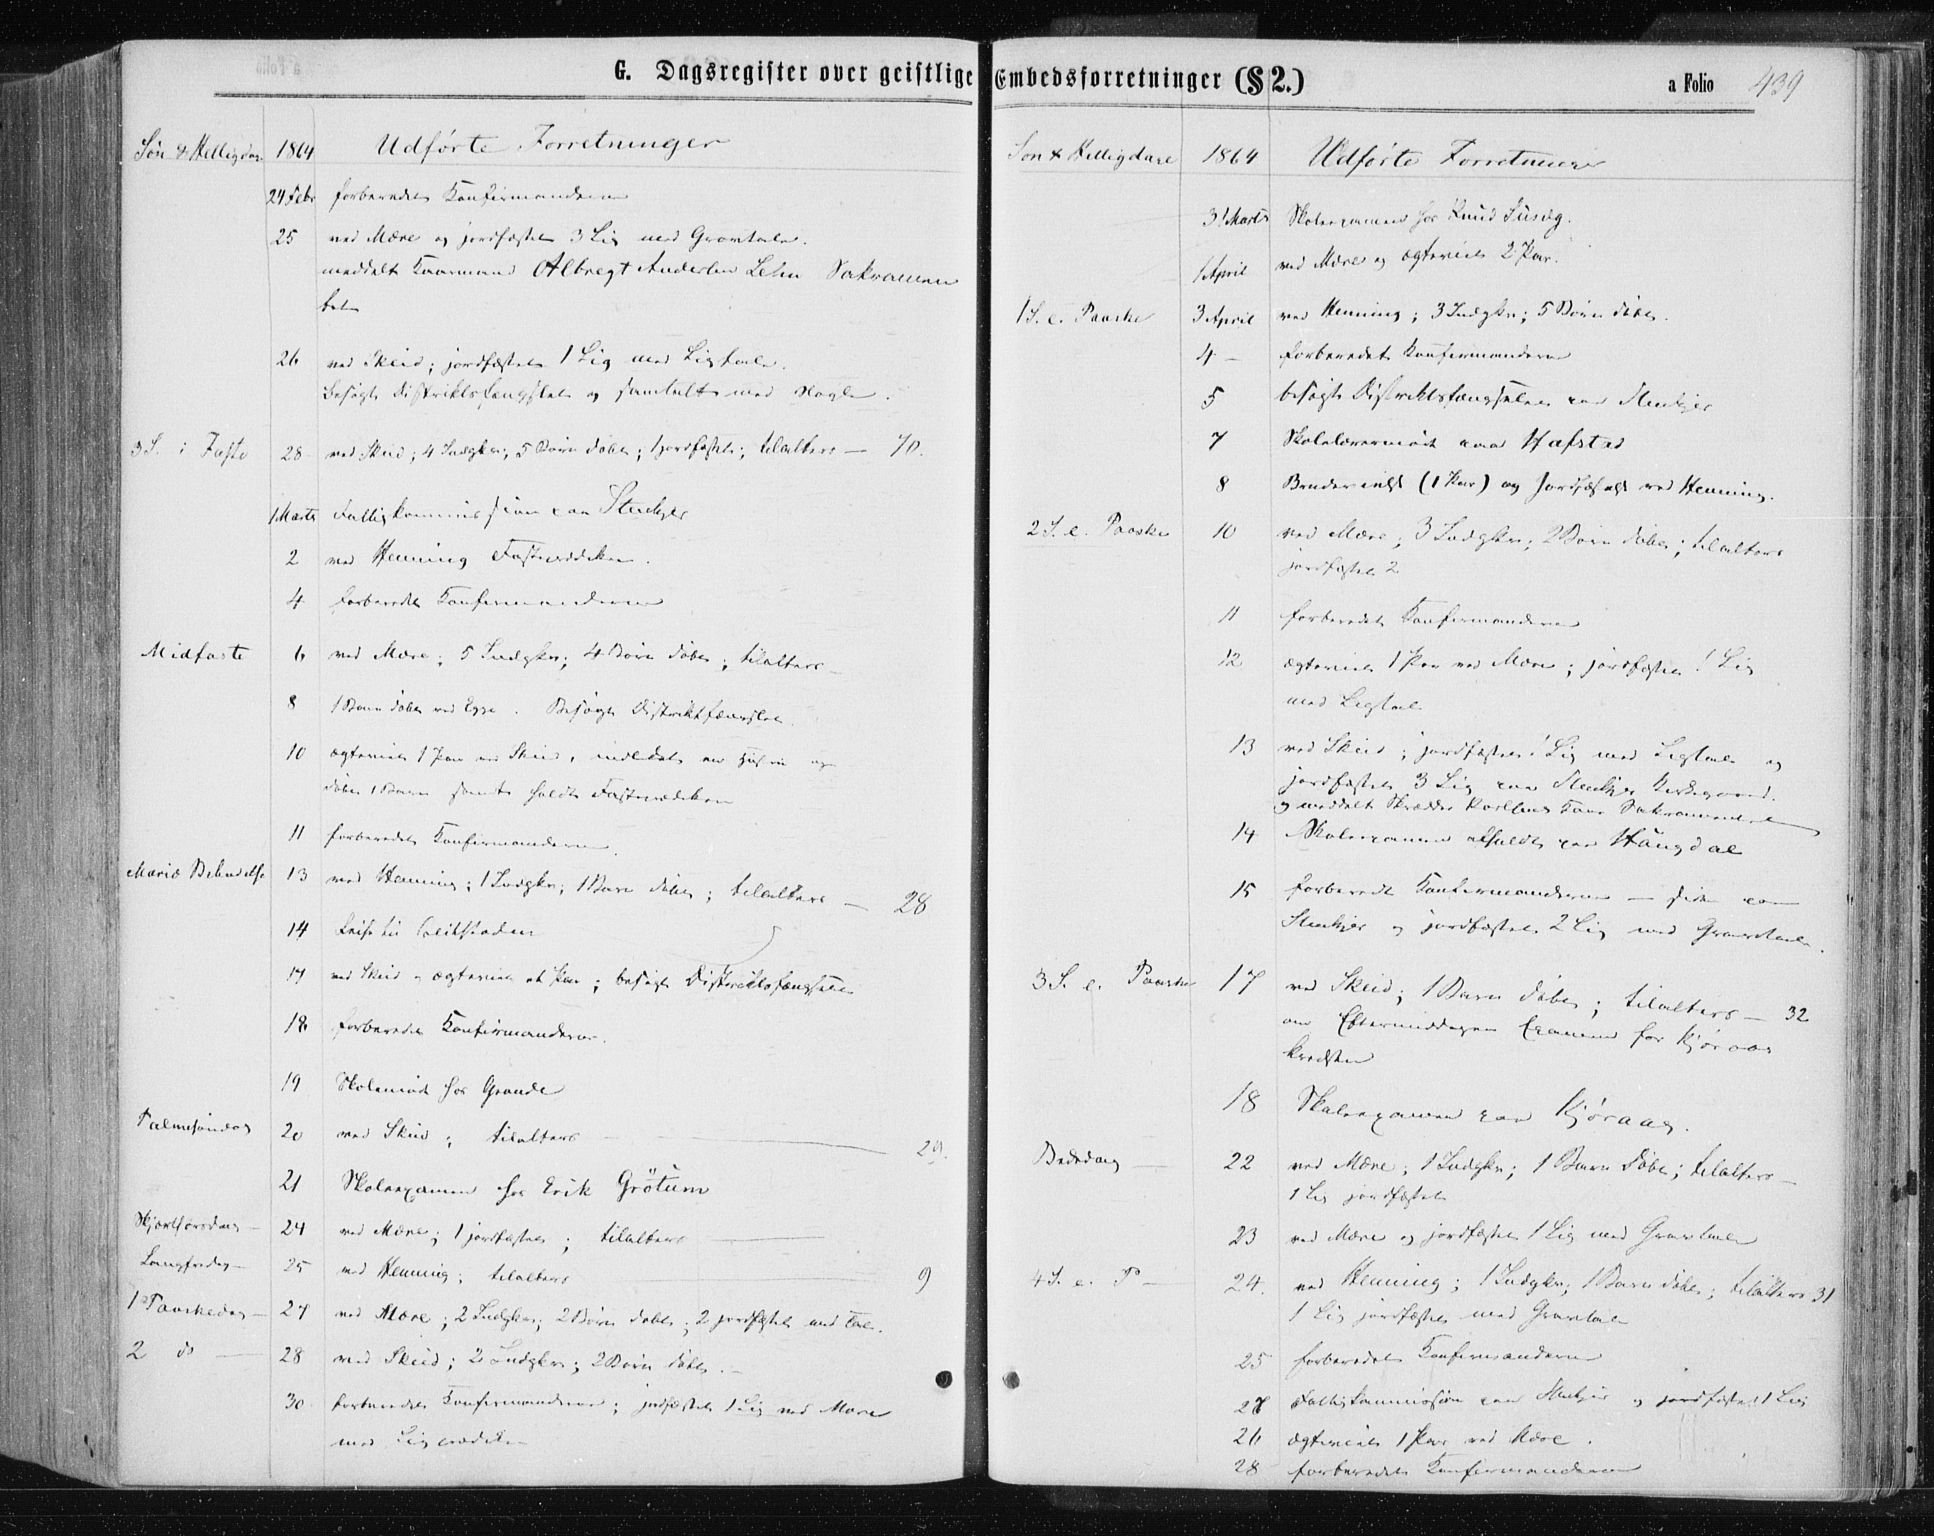 G. Dagsregister over geistlige Embedsforretninger (§ 2.)
a Folio 439
Søn & Helligdage 1864 Udførte Forretninger
24 Febr forberedet Konfirmanderne
25 ved Mære og jordfæstet 3 Lig med Gravtale.
meddelt Kaarmand Albregt Andersen Lehn Sakramen
tet
26 ved Skeid; jordfæstet 1 Lig med Ligtale.
Besøgt Distriktsfængslet og samtalt med Nogle.
3 S. i Faste 28 ved Skeid; 4 Indgkn; 5 Børn døbt; 1 jordfæstet; tilalters — 70.
1 Marts Fattigkommission paa Stenkjer
2 ved Henning Fasteprædiken.
4 forberedet Konfirmanderne
Midfaste 6 ved Mære; 5 Indgkn; 4 Børn døbt; tilalters —
8 1 Barn døbt ved Egge. Besøgt Distriktfængslet.
10 ægteviet 1 Par ved Skeid, indledet en Hustru og
døbt 1 Barn samt holdt Fasteprædiken
11 forberedet Konfirmanderne.
Mariæ Bebudelse 13 ved Henning; 1 Indgkn; 1 Barn døbt; tilalters — 28
14 Reise til
17 ved Skeid og ægteviet et Par; besøgt Distriktsfængslet
18 forberedet Konfirmanderne.
19 Skolemøde hos Grande
Palmesøndag 20 ved Skeid; tilalters — 29.
21 Skoleexamen hos Erik Grötum
Skjærthorsdag — 24 ved Mære; 1 jordfæstet; tilalters —
Langfredag — 25 ved Henning; tilalters — 9
1 Paaskedag — 27 ved Mære; 2 Indgkn; 2 Børn døbt; 2 jordfæstet med Tale.
2 do — 28 ved Skeid; 2 Indgkn; 2 Børn døbt. —
30 forberedet Konfirmanderne; jordfæstet 1 Lig ved Mære
med Ligprædiken
Søn & Helligdage 1864 Udførte Forretninger
31 Marts Skoleexamen hos Knud Susæg.
1 April ved Mære og ægteviet 2 Par.
1 S. e. Paaske 3 April ved Henning; 3 Indgkn; 5 Børn døbt.
4 — forberedet Konfirmanderne
5 besøgt Distriktsfængslet paa Stenkjer
7 Skolelærermøde paa Hafstad
8 Brudevielse (1 Par) og Jordfæstelse ved Henning.
2 S. e. Paaske 10 ved Mære; 3 Indgkn; 2 Børn døbt; tilalters
jordfæstet 2
11 forberedet Konfirmanderne
12 ægteviet 1 Par ved Mære; jordfæstet 1 Lig
med Ligtale
13 ved Skeid; jordfæstet 1 Lig med Ligtale og
jordfæstet 3 Lig paa Stenkjer Kirkegaard.
og meddelt Skrædder Sakramentet
14 Skoleexamen afholdt paa Haugdal
15 forberedt Konfirmanderne — siden paa
Stenkjer og jordfæstet 2 Lig med Gravtale.
3 S. e. Paaske 17 ved Skeid; 1 Barn døbt; tilalters — 32
om Eftermiddagen Examen for Kjøraas
Kredsen
18 Skoleexamen paa Kjøraas.
Bededag — 22 ved Mære; 1 Indgkn; 1 Barn døbt; tilalters —
1 Lig jordfæstet
23 ved Mære og jordfæstet 1 Lig med Gravtale
4 S. e. P — 24. ved Henning; 1 Indgkn; 1 Barn døbt; tilalters 31
1 Lig jordfæstet med Gravtale
25 forberedet Konfirmanderne
27 Fattigkommission paa Stenkjer og jordfæstet 1 Lig
26 ægteviet 1 Par ved Mære.
28 forberedet Konfirmanderne